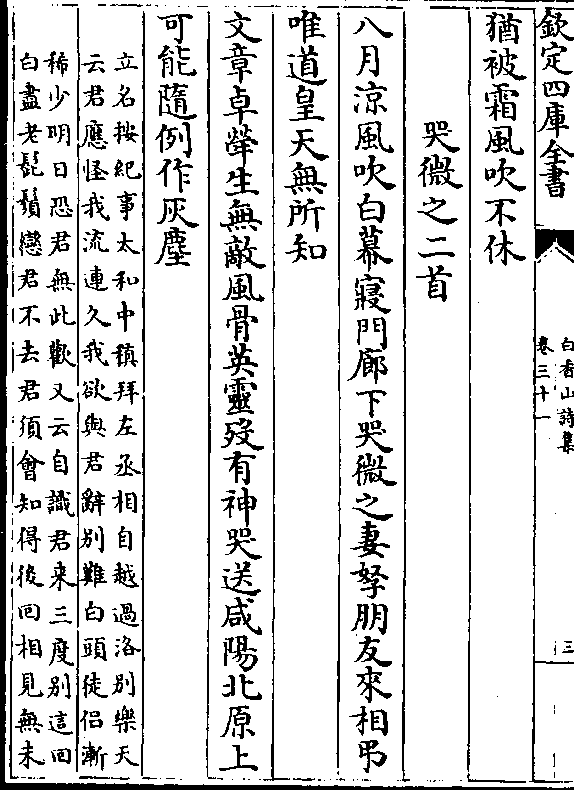 欽定四庫全書
白香山詩集
卷三十一
三
猶被霜風吹不休
哭微之二首
八月涼風吹白幕寢門廊下哭微之妻孥朋友來相弔
唯道皇天無所知
文章卓犖生無敵風骨英靈歿有神哭送咸陽北原上
可能隨例作灰塵
立名按紀事太和中稹拜左丞相自越過洛別樂天
云君應怪我流連久我欲與君辭別難白頭徒侣漸
稀少明日恐君無此歡又云自識君來三度別這回
白盡老髭鬚戀君不去君須會知得後回相見無未